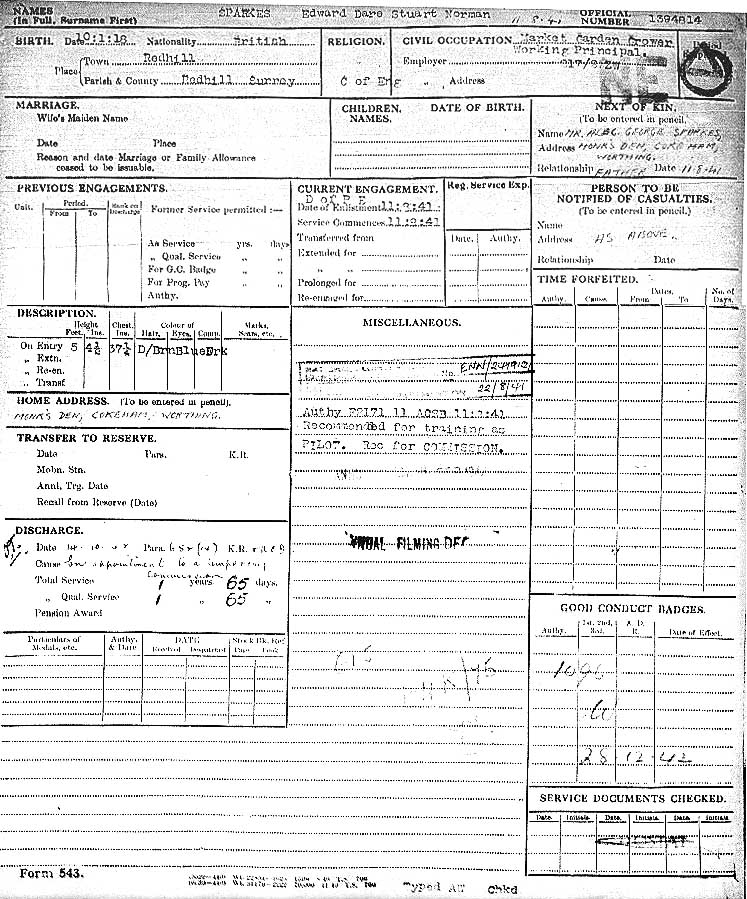 NAMES (In Full, Surname First) SPARKES Edward Dare Stuart Norman OFFICIAL NUMBER 1394814
BIRTH. Date 10:1:18 Nationality British
Place Town Redhill
Parish & County Redhill Surrey
RELIGION.
C of Eng
CIVIL OCCUPATION Market Garden Grower
Working Principal.
Employer
Address
MARRIAGE.
Wife's Maiden Name
Date Place
Reason and date Marriage or Family Allowance
ceased to be issuable.
CHILDREN, NAMES. DATE OF BIRTH.
NEXT OF KIN.
(To be entered in pencil.)
Name MR. GEORGE SPARKES,
Address MONK'S DEN, COKEHAM,
WORTHING.
Relationship FATHER Date 11.8.41
PREVIOUS ENGAGEMENTS.
Unit. Period. From To Rank on Discharge Former Service permitted :—
As Service yrs. days
„ Qual. Service „ „
For G.C. Badge „ „
For Prog. Pay „ „
Authy.
CURRENT ENGAGEMENT. Reg. Service Exp.
D of P E
Date of Enlistment 11:8:41
Service Commences 11:8:41
Transferred from Date. Authy.
Extended for
„ „
Prolonged for
Re-engaged for
PERSON TO BE
NOTIFIED OF CASUALTIES.
(To be entered in pencil.)
Name
Address AS ABOVE.
Relationship Date
TIME FORFEITED.
Authy. Cause. Dates. From To No. of Days.
DESCRIPTION.
Height Feet. Ins. Chest. Ins. Colour of Hair, Eyes, Comp. Marks, Scars, etc.
On Entry 5 4½ 37½ D/Brn Blue Frk
„ Extn.
„ Re-en.
„ Transf
HOME ADDRESS. (To be entered in pencil).
MONK'S DEN, COKEHAM, WORTHING.
TRANSFER TO RESERVE.
Date Para. K.R.
Mobn. Stn.
Annl. Trg. Date
Recall from Reserve (Date)
MISCELLANEOUS.
No.
22/8/41
Authy 11 ACSB 11:8:41
Recommended for training as
PILOT. Rec for COMMISSION.
FILMING DEC
DISCHARGE.
Date Para. K.R.
Cause On appointment to a temporary
Commission
Total Service 1 years 65 days.
„ Qual. Service 1 „ 65 „
Pension Award
Particulars of Medals, etc. Authy. & Date DATE Received Despatched Stock Bk. Ref Page Book
GOOD CONDUCT BADGES.
Authy. 1st, 2nd, 3rd. A. D. R. Date of Effect.
28 12 42
SERVICE DOCUMENTS CHECKED.
Date. Initials. Date. Initials. Date. Initials.
Form 543.
Typed AW Chkd